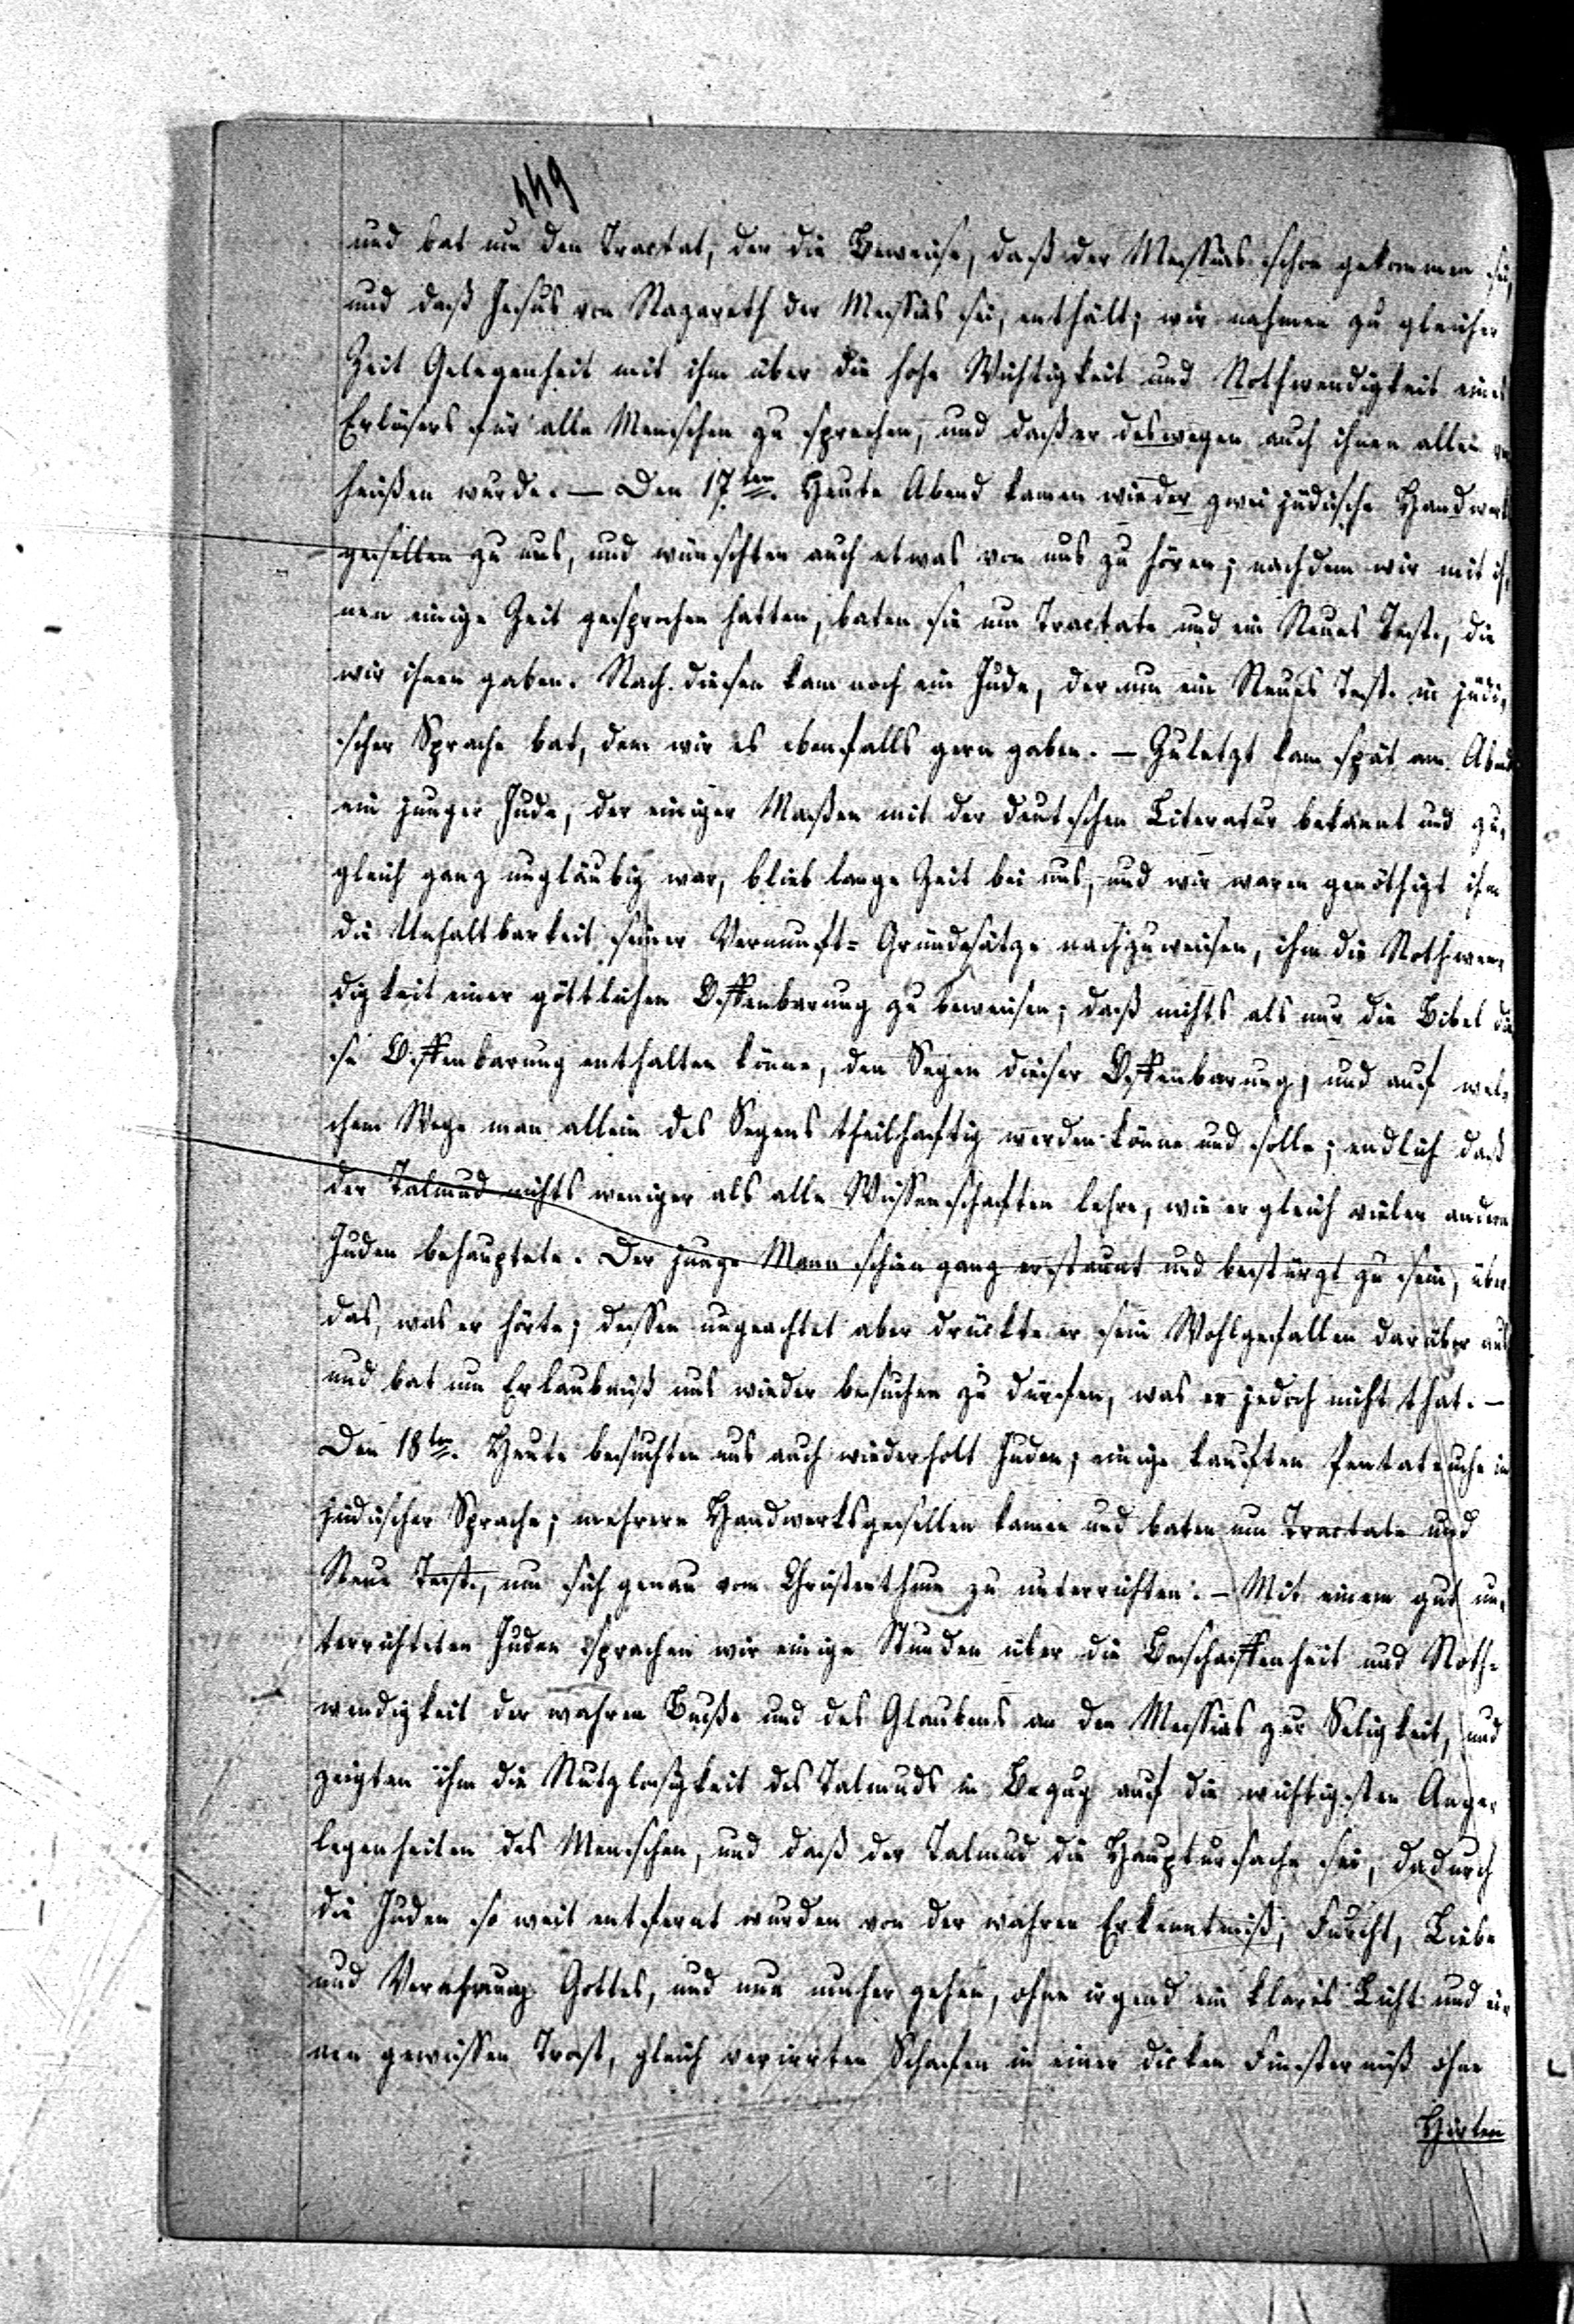 449
und bat um den Tractat, der die Beweise, daß der Messias schon gekommen sei,
und daß Jesus von Nazareth der Messias sei, enthält; wir nahmen zu gleicher
Zeit Gelegenheit mit ihm über die hohe Wichtigkeit und Nothwendigkeit eines
Erlösers für alle Menschen zu sprechen, und daß er deswegen auch ihnen allen ver
heißen wurde. — Den 17ten. Heute Abend kamen wieder zwei jüdische Handwerks
gesellen zu uns, und wünschten auch etwas von uns zu hören; nachdem wir mit ih,
nen einige Zeit gesprochen hatten, baten sie um Tractate und ein Neues Test., die
wir ihnen gaben. Nach diesen kam noch ein Jude, der nun ein Neues Test. in jüdi,
scher Sprache bat, dem wir es ebenfalls gern gaben. — Zuletzt kam spät am Abend
ein junger Jude, der einiger Maßen mit der deutschen Literatur bekannt und zu,
gleich ganz ungläubig war, blieb lange Zeit bei uns, und wir waren genöthigt ihm
die Unhaltbarkeit seiner Vernunft= Grundsätze nachzuweisen, ihm die Nothwen,
digkeit einer göttlichen Offenbarung zu beweisen; daß nichts als nur die Bibel die
se Offenbarung enthalten könne, den Segen dieser Offenbarung, und auf wel,
chem Wege man allein des Segens theilhaftig werden könne und solle; endlich daß
der Talmud nichts weniger als alle Wissenschaften lehre, wie er gleich vielen andern
Juden behauptete. Der junge Mann schien ganz erstaunt und bestürzt zu sein, über
das, was er hörte; dessen ungeachtet aber drückte er sein Wohlgefallen darüber aus
und bat um Erlaubniß uns wieder besuchen zu dürfen, was er jedoch nicht that. —
Den 18ten. Heute besuchten uns auch wiederholt Juden; einige kauften Pentateuche in
jüdischer Sprache; mehrere Handwerksgesellen kamen und baten um Tractate und
Neue Test., um sich genau vom Christenthum zu unterrichten. — Mit einem gut un,
terrichteten Juden sprachen wir einige Stunden über die Beschaffenheit und Noth=
wendigkeit der wahren Buße und des Glaubens an den Messias zur Seligkeit, und
zeigten ihm die Nutzlosigkeit des Talmuds in Bezug auf die wichtigsten Ange,
legenheiten des Menschen, und daß der Talmud die Hauptursache sei, dadurch
die Juden so weit entfernt wurden von der wahren Erkenntniß, Furcht, Liebe
und Verehrung Gottes, und nun umher gehen, ohne irgend ein klares Licht und ei,
nen gewissen Trost, gleich verirrten Schafen in einer dicken Finsterniß ohne
Hirten